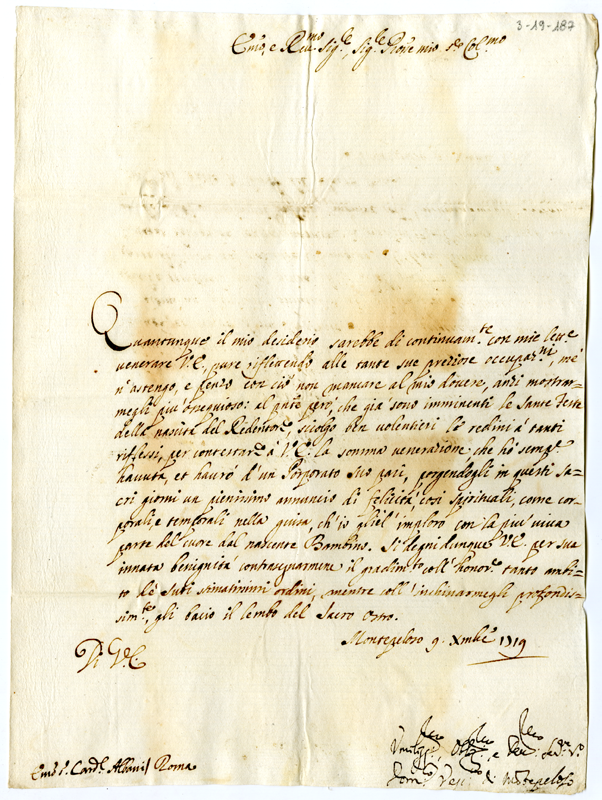 3-19-187
Em̃o, e Reu.mo Sig.re, Sig.re P̃rone mio Col.mo
Quantunque il mio desiderio sarebbe di continuam.te con mie lr̃e
venerare V.E., pure riflettendo alle tante sue preziose occupaz.ni, me
n'astengo, e penso con ciò non mancare al mio douere, anzi mostrar=
megli più ossequioso: al pñte però, che già sono imminenti le Sante Feste
della nascita del Redentore, sciolgo ben volentieri le redini à tanti
riflessi, per contestare à V.E. la somma venerazione che hò sempre
havuta, et haurò d'un Porporato suo pari, porgendogli in questi sa=
cri giorni un pienissimo annuncio di felicità, così spirituali, come cor=
porali, e temporali nella guisa, ch'io gliel' imploro con la più viva
parte del cuore dal nascente Bambino. Si degni dunque V.E. per sua
innata benignità contrasegnarmene il gradim.to coll' honore tanto ambi=
to de suoi stimatissimi ordini, mentre coll' inchinarmegli profondis=
sim.te, gli bacio il lembo del Sacro Ostro.
Montepeloso 9. Xmbre 1719
Di V.E.
Vmiliss.o, e
di Montepeloso
Em̃o S. Card.l Albani Roma